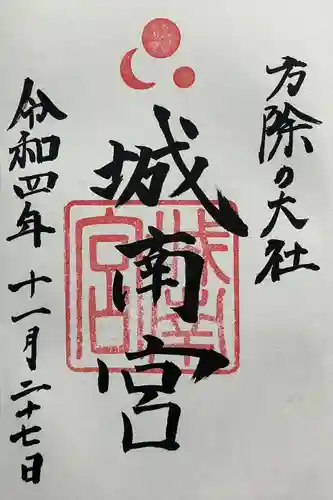 方除の大社
城南宮
令和四年十一月二十七日
城南宮